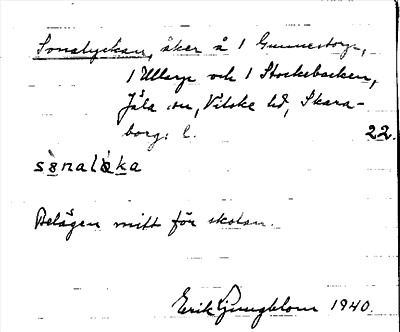 Sonalyckan, åker å 1 Gunnestorp,
1 Ullarp och 1 Stockabacken,
Jäla sn, Vilske hd, Skara-
borgs l. 22.
sònalỳka
Belägen mitt för skolan.
Erik Ljungblom 1940.